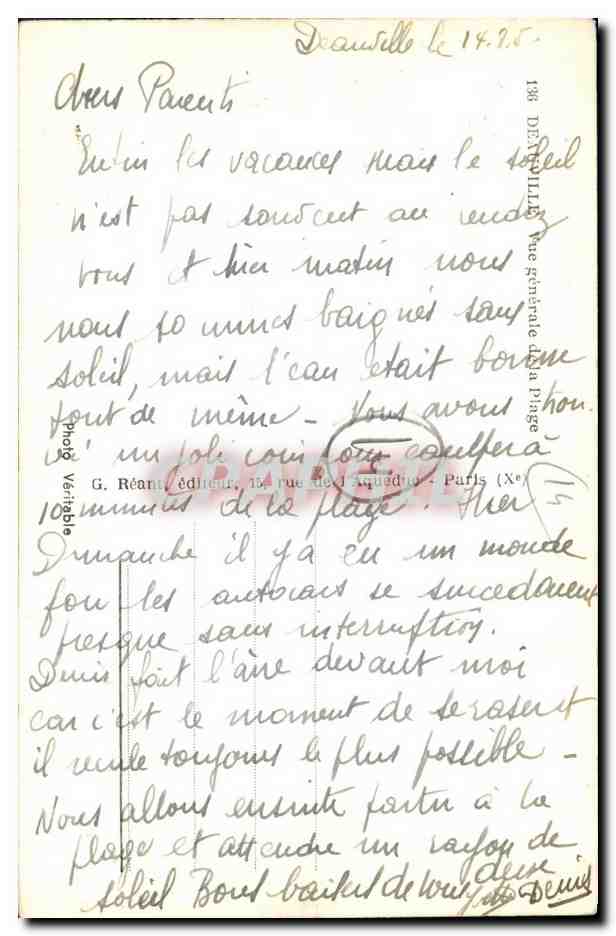 Deauville le 14.9.5
Chers Parents
Enfin les vacances mais le soleil
n'est pas souvent au rendez
vous et hier matin nous
nous sommes baignés sans
soleil, mais l'eau était bonne
tout de même - Nous avons trou
vé un joli coin pour camper à
10 minutes de la plage. Hier
Dimanche il y a eu un monde
fou les autocars se succedaient
presque sans interruption.
Denis fait l'âne devant moi
car c'est le moment de se raser et
il recule toujours le plus possible -
Nous allons ensuite partir à la
plage et attendre un rayon de
soleil Bons baisers de tous deux
Denis
136 DEAUVILLE Vue générale de la Plage
G. Réant, éditeur, 15, rue de l'Aqueduc - Paris (Xe)
Photo Véritable
14